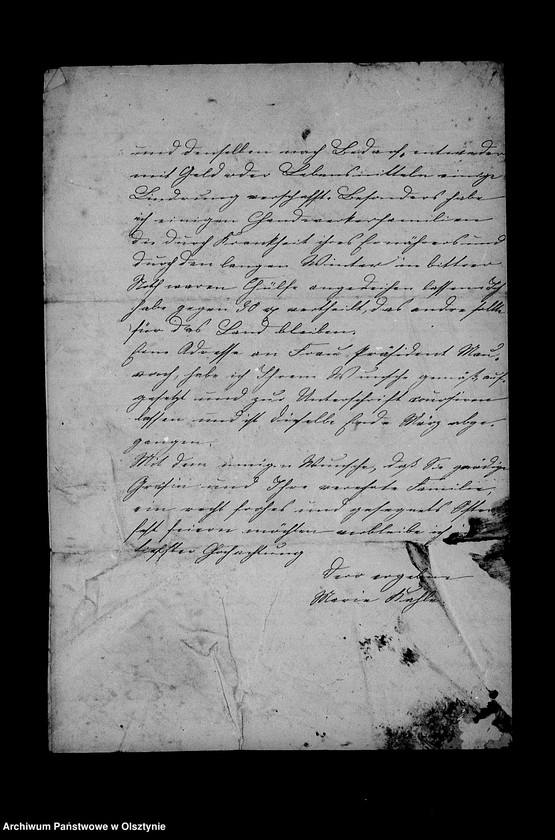 und denselben nach Bedarf, entweder
mit Geld oder Lebensmitteln einige
Linderung verschafft. Besonders habe
ich einigen Handwerkerfamilien
die durch Krankheit ihres Ernährers und
durch den langen Winter in bittrer
Noth waren Hülfe angedeihen lassen. Ich
habe gegen 50 vertheilt, das andre sollte
für das Land bleiben.
Eine Adresse an Frau Präsident Mau-
rach, habe ich Ihrem Wunsche gemäß auf-
gesetzt und zur Unterschrift coursiren
lassen und ist dieselbe Ende März abge-
gangen.
Mit dem innigen Wunsche, daß Sie gnädige
Gräfin und Ihre verehrte Familie,
ein recht frohes und gesegnetes Oster-
fest feiern möchten verbleibe ich
tiefster Hochachtung
Ihre ergebene
Marie Kahle
Archiwum Państwowe w Olsztynie